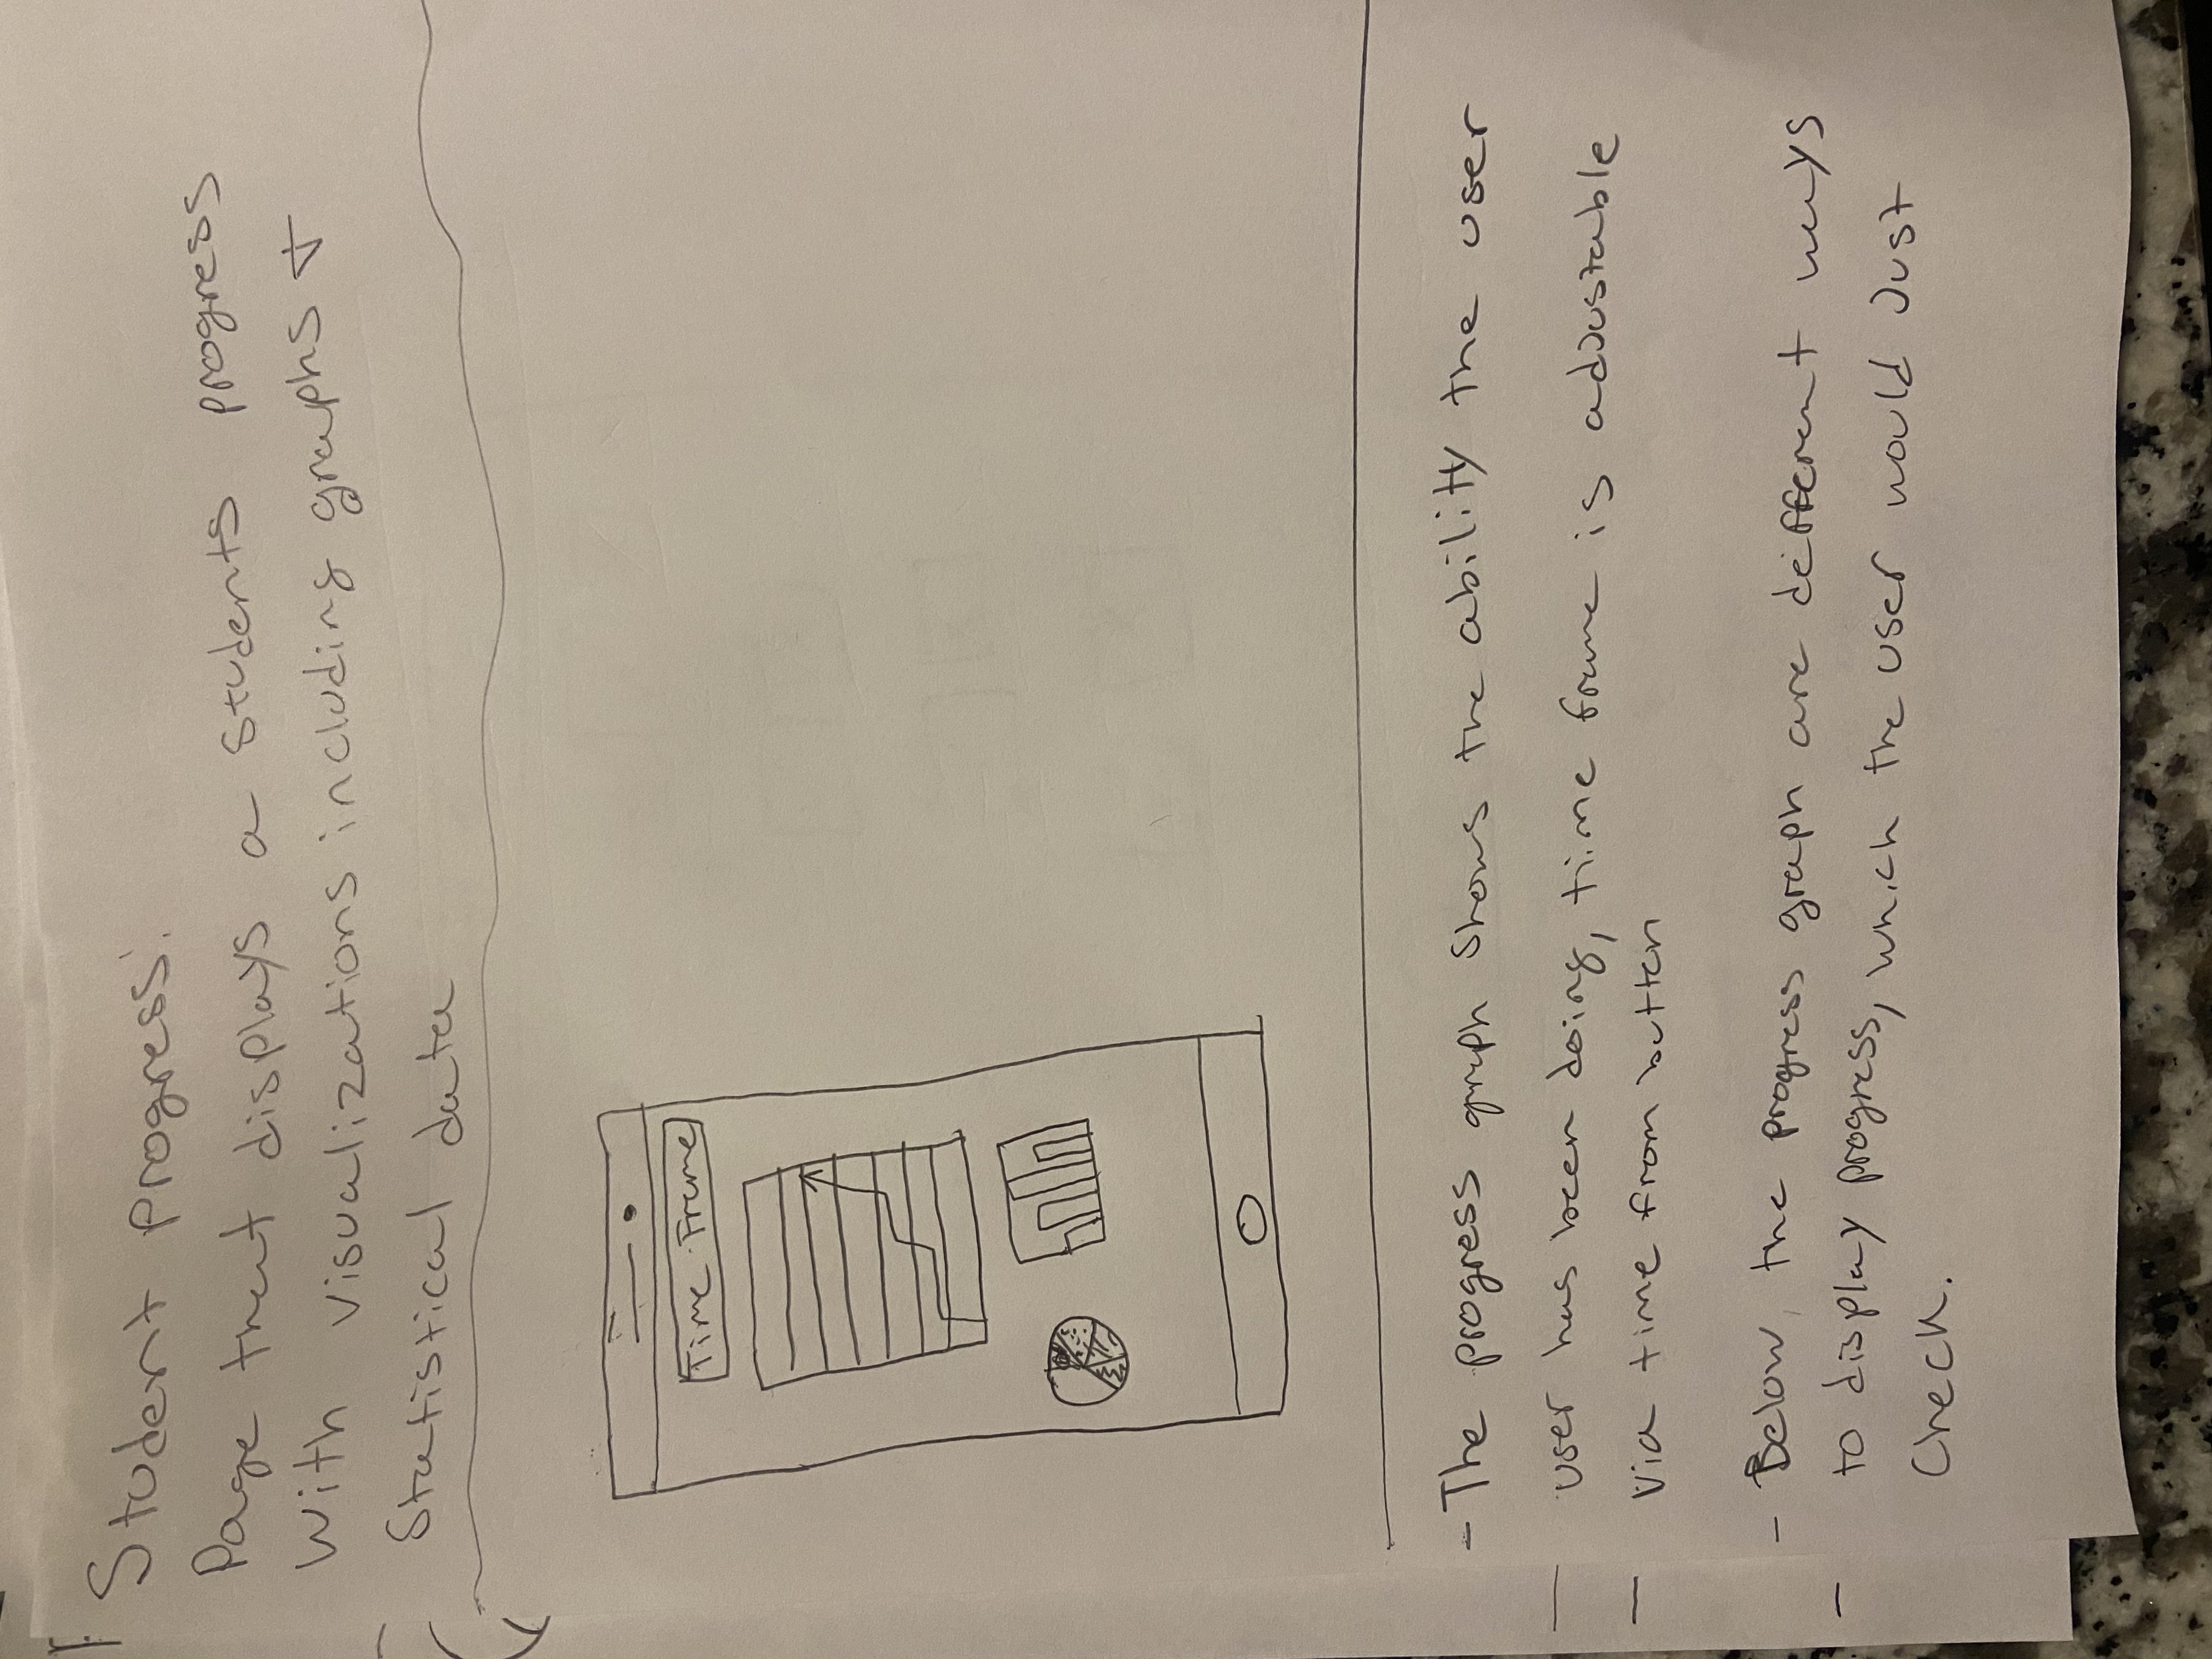 Student progress:
Page that displays a students progress
With visualizations including graphs +
Statistical data
Time Frame
- The progress graph shows the ability the user
user has been doing, time frame is adjustable
via time from button
- Below, the progress graph are different ways
to display progress, which the user would Just
Check.